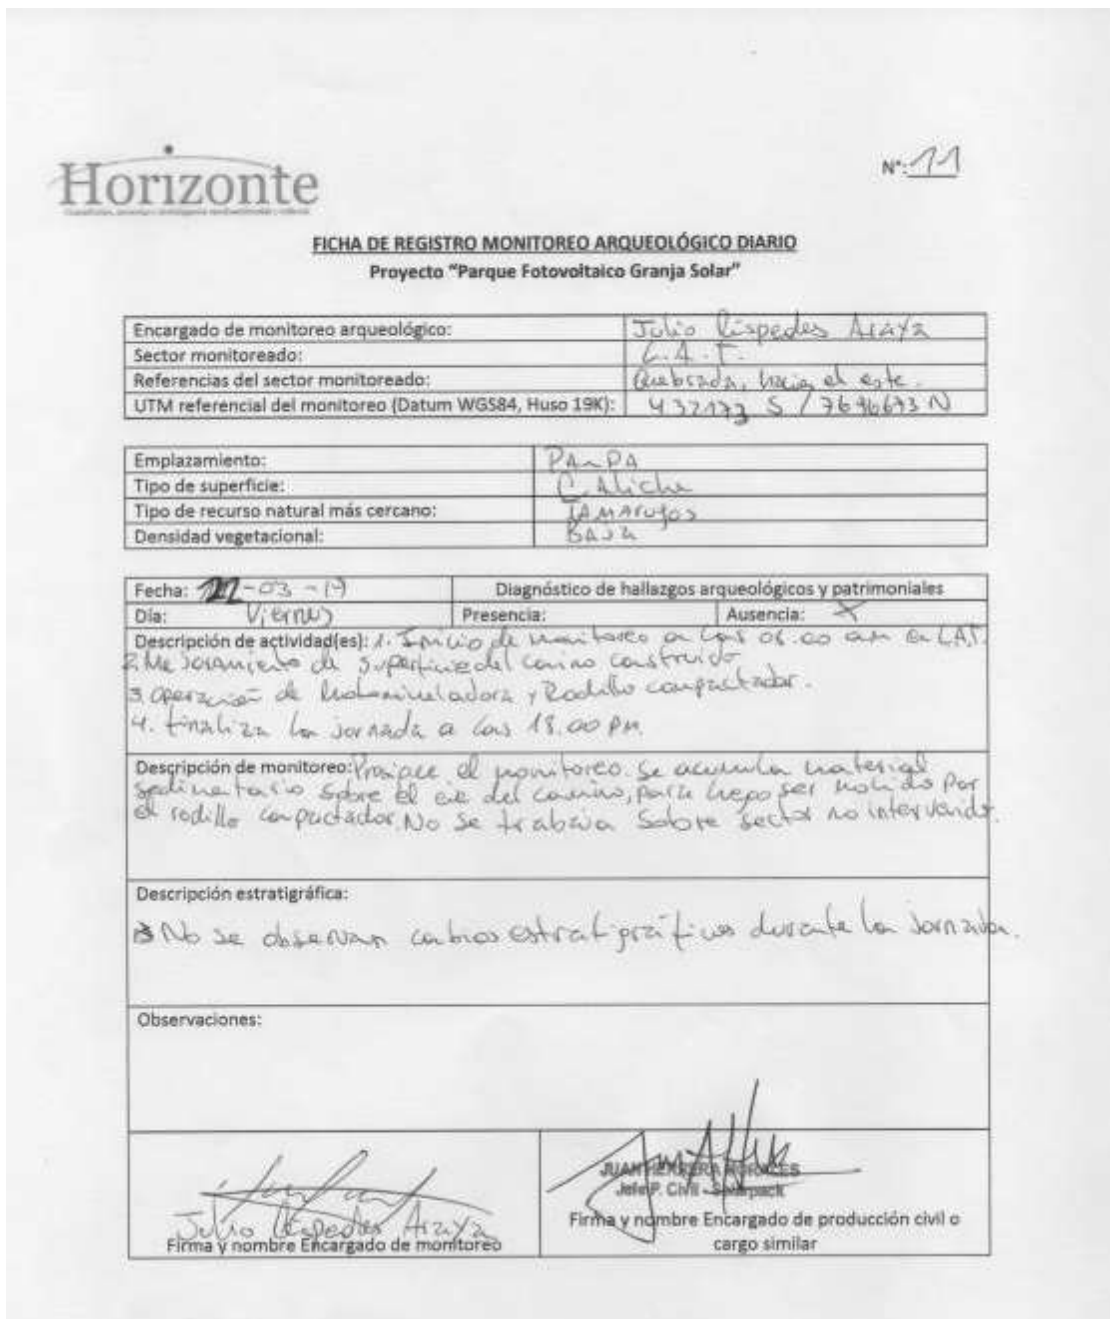 Horizonte
N°: 11
FICHA DE REGISTRO MONITOREO ARQUEOLÓGICO DIARIO
Proyecto "Parque Fotovoltaico Granja Solar"
Encargado de monitoreo arqueológico: Julio Céspedes Araya
Sector monitoreado: L.A.T.
Referencias del sector monitoreado: Quebrada, hacia el este.
UTM referencial del monitoreo (Datum WGS84, Huso 19K): 432173 S / 7696693 N
Emplazamiento: PAMPA
Tipo de superficie: Caliche
Tipo de recurso natural más cercano: TAMArugos
Densidad vegetacional: BAJA
Fecha: 22-03-19 Diagnóstico de hallazgos arqueológicos y patrimoniales
Día: Viernes Presencia: Ausencia: X
Descripción de actividad(es): 1. Inicio de monitoreo a las 08.00 am en LAT.
2. Mejoramiento de superficie del camino construido
3. operación de Motoniveladora y Rodillo compactador.
4. finaliza la jornada a las 18.00 PM.
Descripción de monitoreo: Prosigue el monitoreo. Se acumula material
sedimentario sobre el eje del camino, para luego ser molido por
el rodillo compactador. No se trabaja sobre sector no intervenido.
Descripción estratigráfica:
No se observan cambios estratigráficos durante la jornada.
Observaciones:
Julio Céspedes Araya
Firma y nombre Encargado de monitoreo
JUAN HERRERA MORALES
Jefe P. Civil - Solarpack
Firma y nombre Encargado de producción civil o
cargo similar